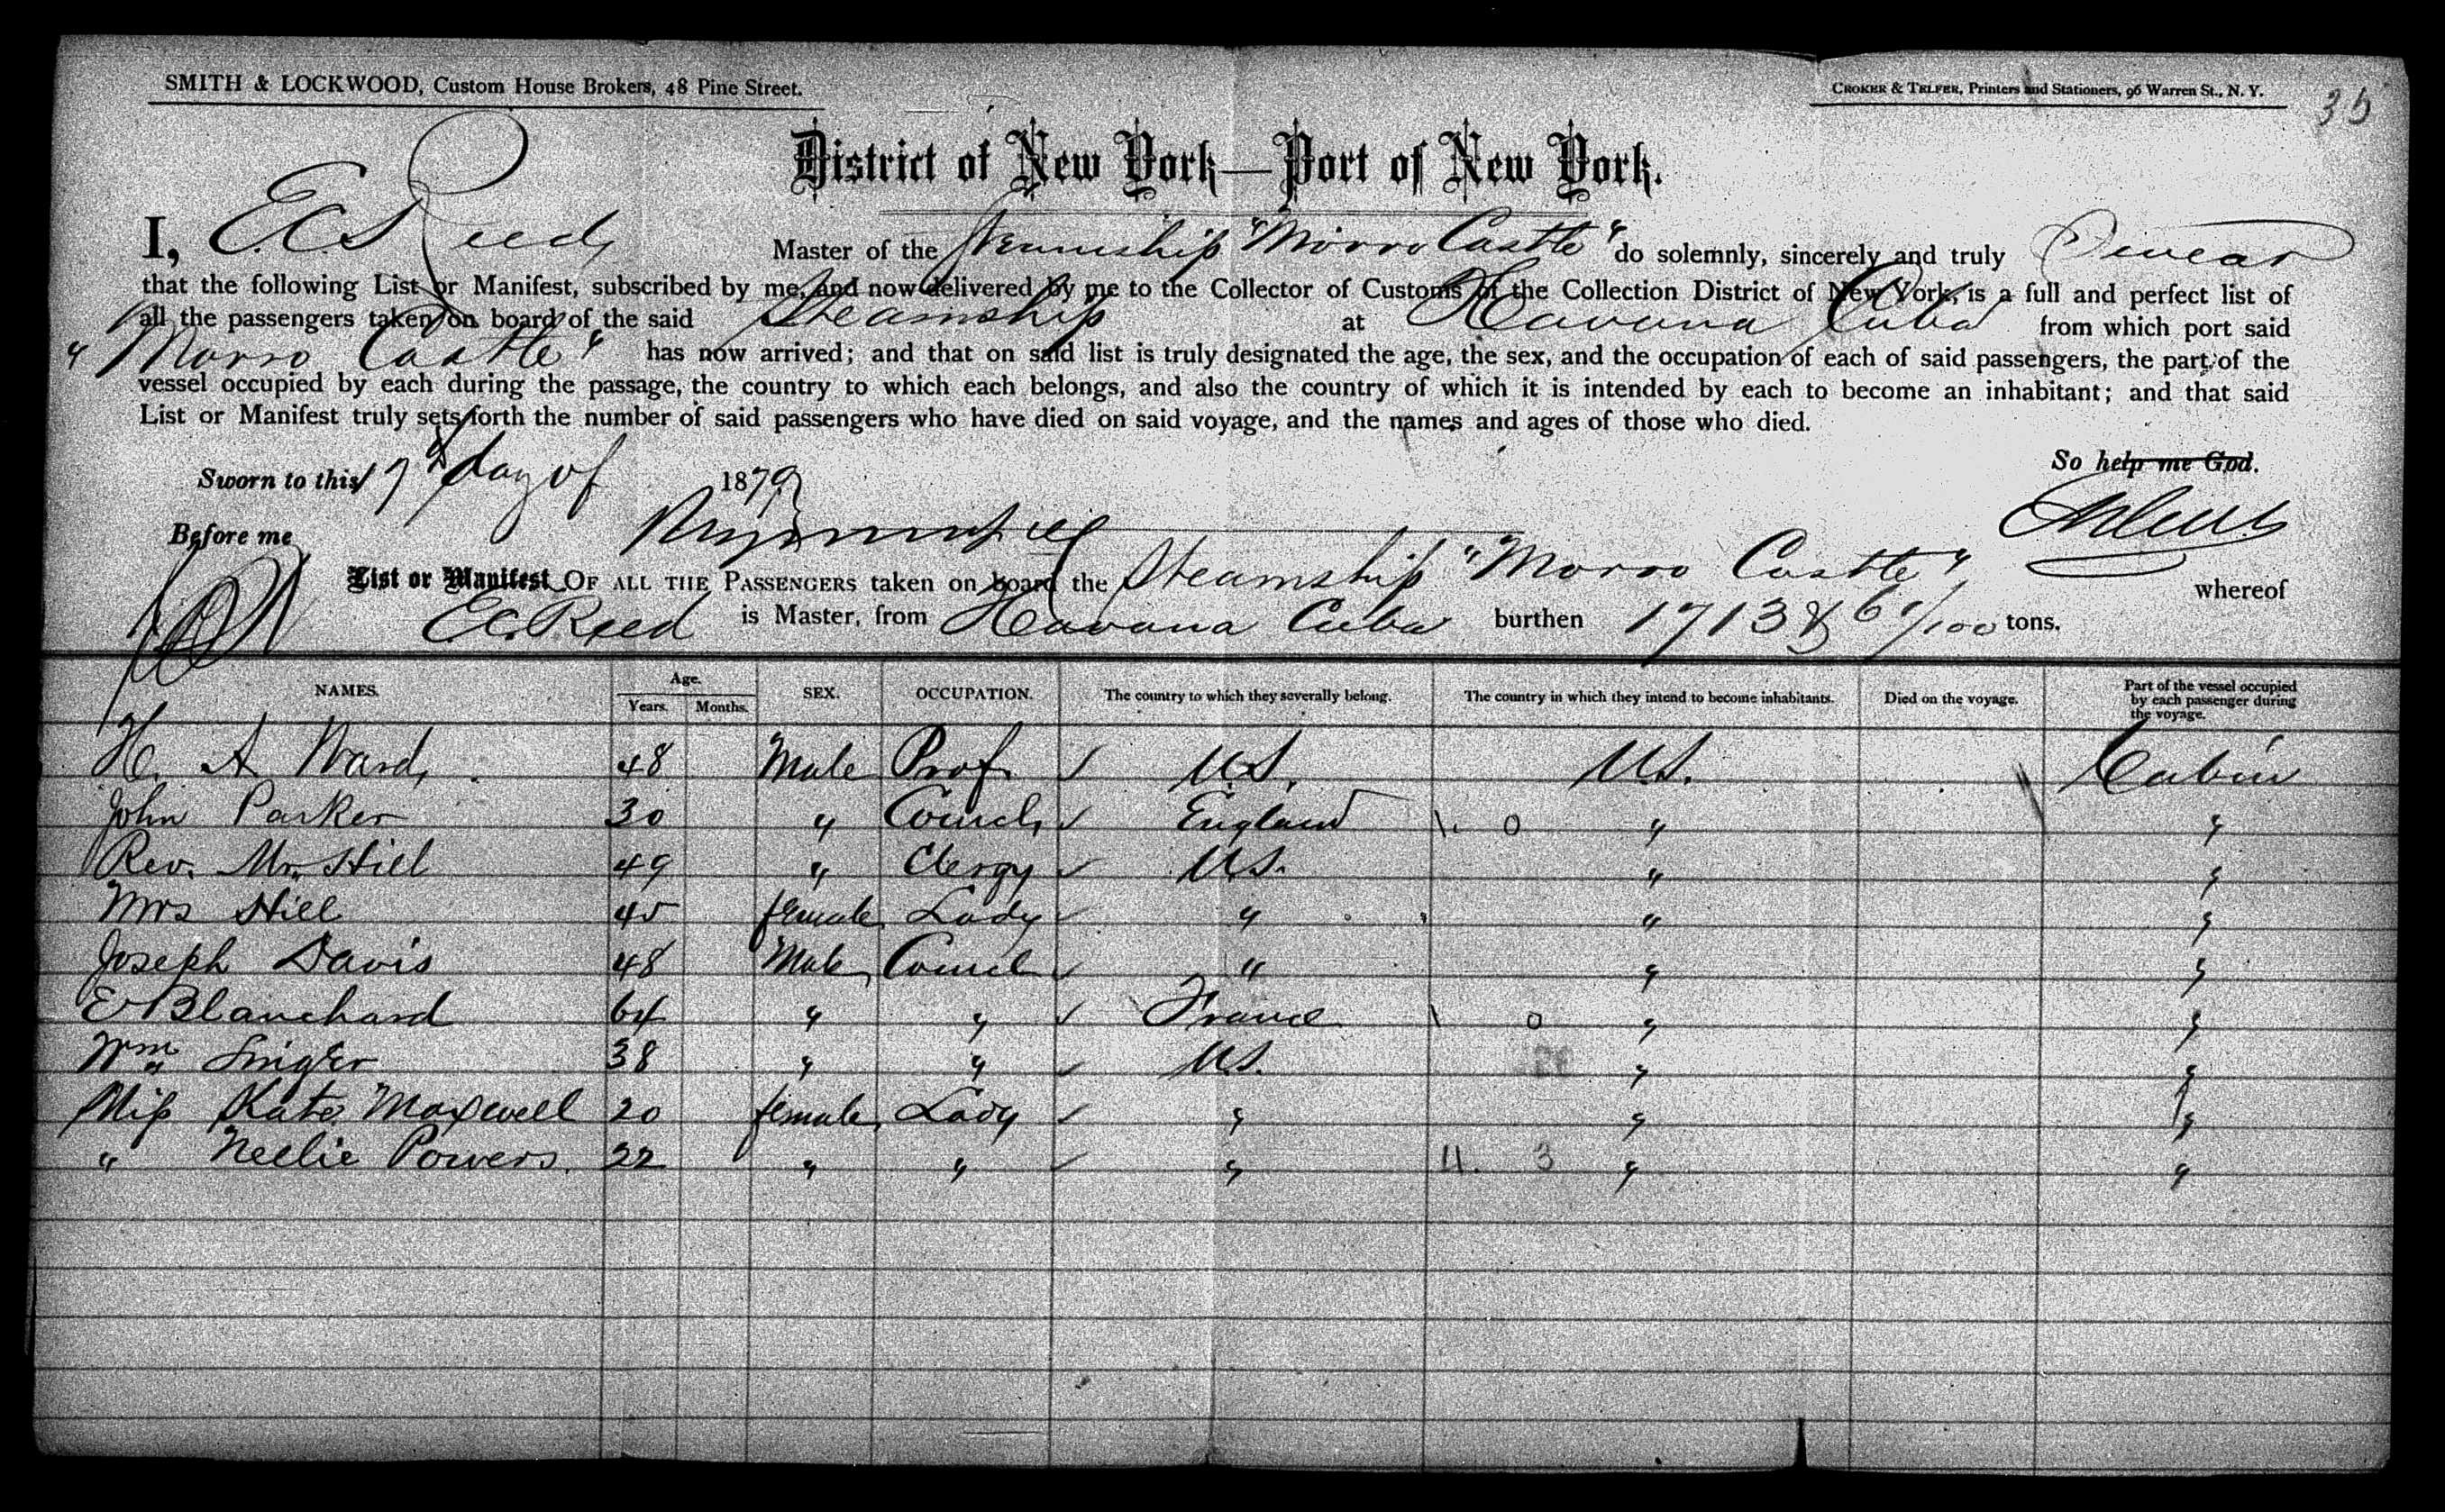 SMITH & LOCKWOOD, Custom House Brokers, 48 Pine Street.
CROKER & TELFER, Printers and Stationers, 96 Warren St., N. Y.
35
District of New York—Port of New York.
I, E C Reed, Master of the Steamship "Morro Castle" do solemnly, sincerely and truly Swear
that the following List or Manifest, subscribed by me, and now delivered by me to the Collector of Customs of the Collection District of New York, is a full and perfect list of
all the passengers taken on board of the said Steamship at Havana Cuba from which port said
"Morro Castle" has now arrived; and that on said list is truly designated the age, the sex, and the occupation of each of said passengers, the part of the
vessel occupied by each during the passage, the country to which each belongs, and also the country of which it is intended by each to become an inhabitant; and that said
List or Manifest truly sets forth the number of said passengers who have died on said voyage, and the names and ages of those who died.
So help me God.
Sworn to this 17th day of 1879
Before me
List or Manifest OF ALL THE PASSENGERS taken on board the Steamship "Morro Castle" whereof
E C. Reed is Master, from Havana Cuba burthen 1713 & 6/100 tons.
NAMES. Age. Years. Months. SEX. OCCUPATION. The country to which they severally belong. The country in which they intend to become inhabitants. Died on the voyage. Part of the vessel occupied by each passenger during the voyage.
H. A Ward, 48 Male Prof. ✓ U.S. U.S. Cabin
John Parker 30 " Comcl, ✓ England \. 0 " "
Rev. Mr. Hill 49 " Clergy ✓ U.S. " "
Mrs Hill 45 female Lady ✓ " " "
Joseph Davis 48 Male Comcl ✓ " " "
E Blanchard 64 " " ✓ France \ 0 " "
Wm Singer 38 " " ✓ U.S. " "
Miss Kate Maxwell 20 female Lady ✓ " " "
" Nellie Powers. 22 " " ✓ " 4. 3 " "